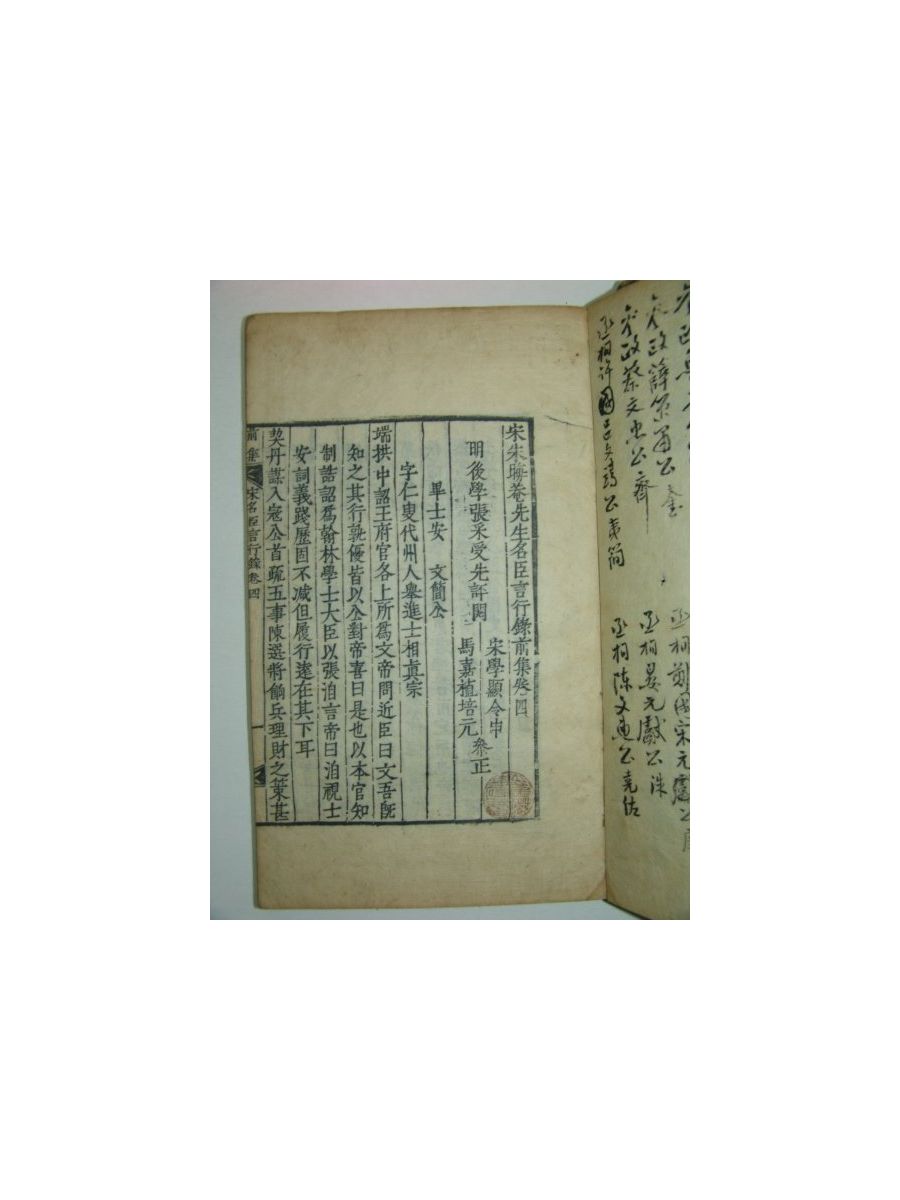 丞相許國呂文靖公夷簡
參政蔡文忠公齊
參政薛簡肅公奎
丞相陳文惠公堯佐
丞相晏元獻公殊
宋朱晦菴先生名臣言行錄前集卷四
明後學張采受先評閱
宋學顯令申
馬嘉植培元
參正
畢士安 文簡公
字仁叟代州人舉進士相眞宗
端拱中詔王府官各上所爲文帝問近臣曰文吾旣
知之其行孰優皆以公對帝喜曰是也以本官知
制誥詔爲翰林學士大臣以張洎言帝曰洎視士
安詞義踐歷固不减但履行遠在其下耳
契丹謀入寇公首疏五事陳選將餉兵理財之策甚
前集 宋名臣言行錄卷四 一